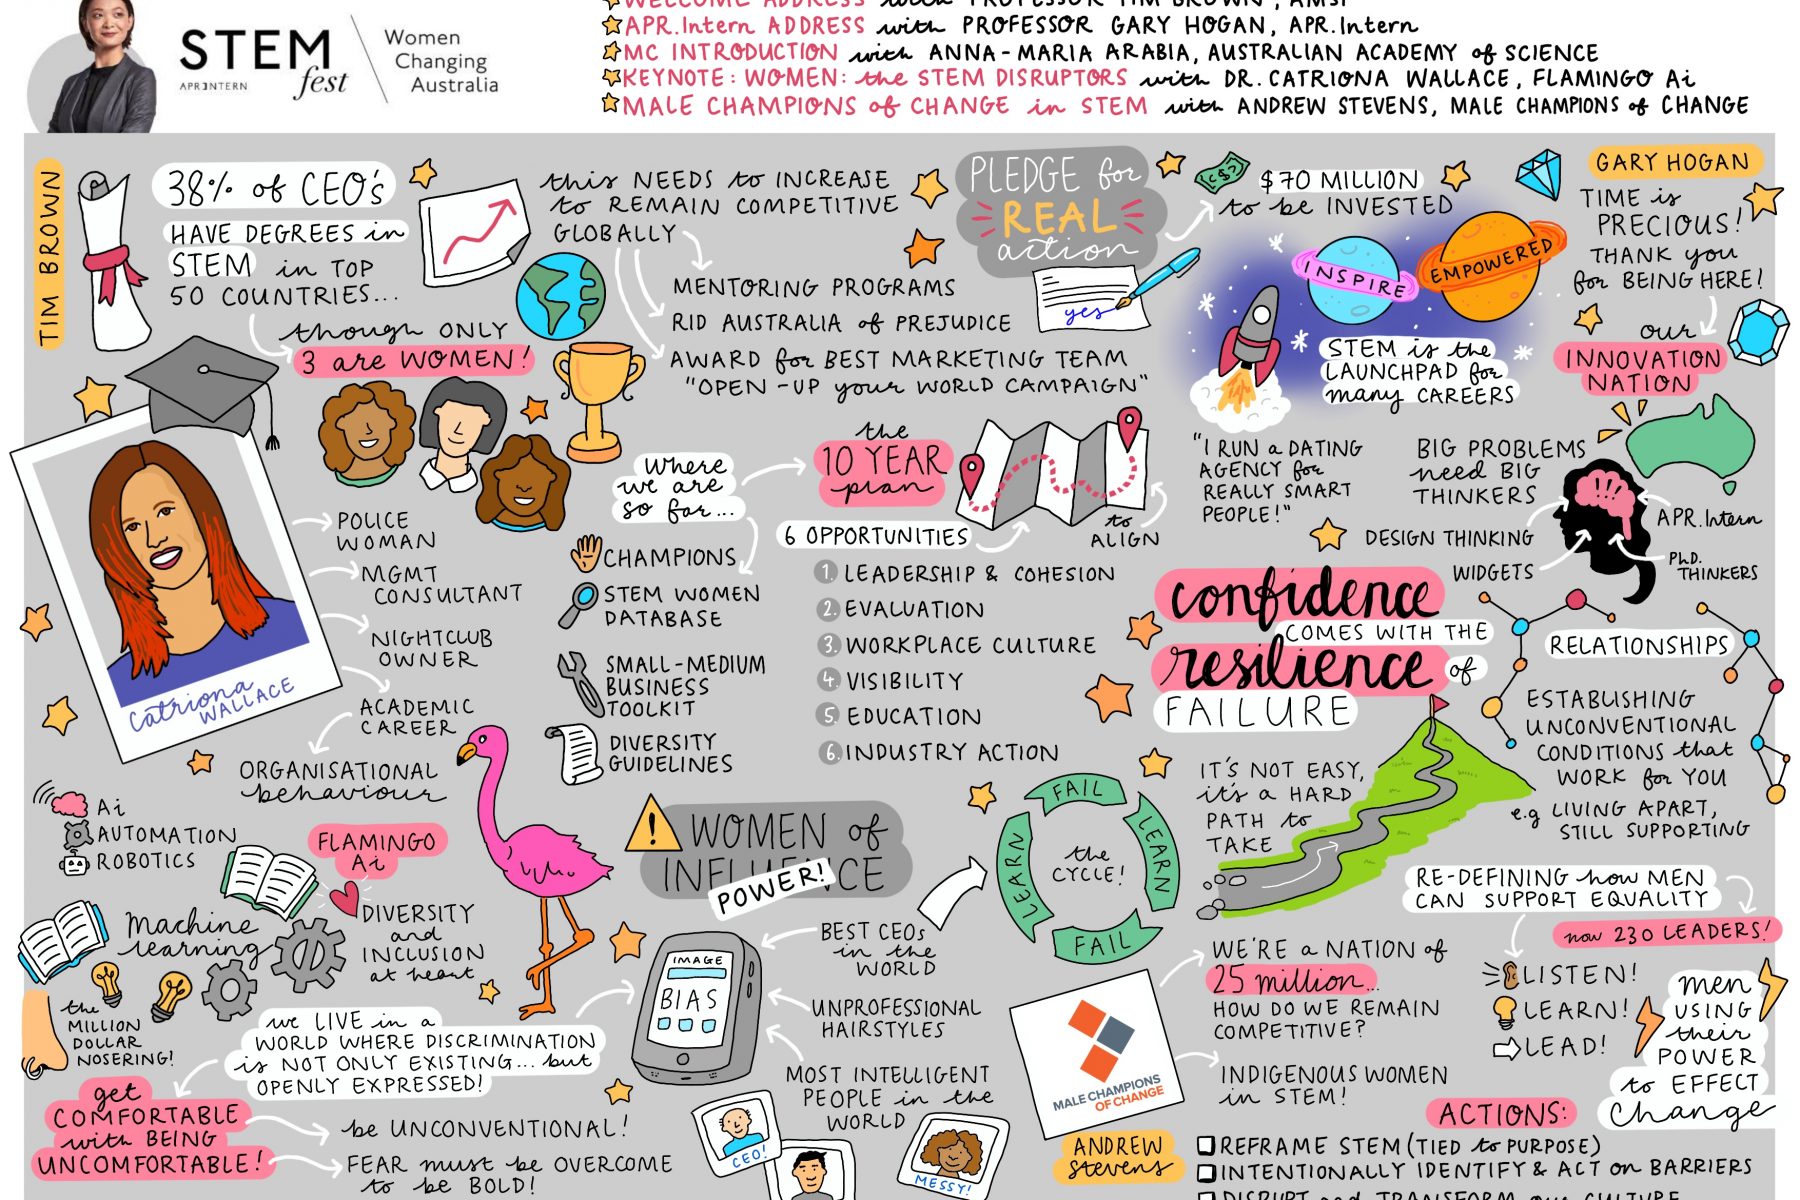 WELCOME ADDRESS with PROFESSOR TIM BROWN, AMSI
APR.Intern ADDRESS with PROFESSOR GARY HOGAN, APR.Intern
MC INTRODUCTION with ANNA-MARIA ARABIA, AUSTRALIAN ACADEMY of SCIENCE
KEYNOTE: WOMEN: the STEM DISRUPTORS with DR. CATRIONA WALLACE, FLAMINGO Ai
MALE CHAMPIONS of CHANGE in STEM with ANDREW STEVENS, MALE CHAMPIONS of CHANGE
STEM
fest
APRINTERN
Women
Changing
Australia
TIM BROWN
38% of CEO's
HAVE DEGREES in
STEM in TOP
50 COUNTRIES...
though ONLY
3 are WOMEN!
this NEEDS to INCREASE
to REMAIN COMPETITIVE
GLOBALLY
MENTORING PROGRAMS
RID AUSTRALIA of PREJUDICE
AWARD for BEST MARKETING TEAM
"OPEN-UP your WORLD CAMPAIGN"
PLEDGE for
REAL
action
yes
$70 MILLION
to be INVESTED
INSPIRE
EMPOWERED
STEM is the
LAUNCHPAD for
many CAREERS
GARY HOGAN
TIME is
PRECIOUS!
THANK you
for BEING HERE!
our
INNOVATION
NATION
"I RUN a DATING
AGENCY for
REALLY SMART
PEOPLE!"
BIG PROBLEMS
need BIG
THINKERS
DESIGN THINKING
WIDGETS
APR.Intern
PhD.
THINKERS
where
we are
so far...
CHAMPIONS
STEM WOMEN
DATABASE
SMALL-MEDIUM
BUSINESS
TOOLKIT
DIVERSITY
GUIDELINES
the
10 YEAR
plan
to
ALIGN
6 OPPORTUNITIES
1. LEADERSHIP & COHESION
2. EVALUATION
3. WORKPLACE CULTURE
4. VISIBILITY
5. EDUCATION
6. INDUSTRY ACTION
Catriona
WALLACE
POLICE
WOMAN
MGMT
CONSULTANT
NIGHTCLUB
OWNER
ACADEMIC
CAREER
ORGANISATIONAL
behaviour
Ai
AUTOMATION
ROBOTICS
FLAMINGO
Ai
DIVERSITY
and
INCLUSION
at heart
Machine
learning
the
MILLION
DOLLAR
NOSERING!
we LIVE in a
WORLD WHERE DISCRIMINATION
is NOT ONLY EXISTING... but
OPENLY EXPRESSED!
get
COMFORTABLE
with BEING
UNCOMFORTABLE!
be UNCONVENTIONAL!
FEAR must be OVERCOME
to be BOLD!
WOMEN of
INFLUENCE
POWER!
IMAGE
BIAS
BEST CEOs
in the
WORLD
UNPROFESSIONAL
HAIRSTYLES
MOST INTELLIGENT
PEOPLE in the
WORLD
CEO!
MESSY!
the
CYCLE!
FAIL
LEARN
FAIL
LEARN
confidence
COMES WITH THE
resilience of
FAILURE
IT'S NOT EASY,
it's a HARD
PATH to
TAKE
RELATIONSHIPS
ESTABLISHING
UNCONVENTIONAL
CONDITIONS that
WORK for YOU
e.g LIVING APART,
STILL SUPPORTING
MALE CHAMPIONS
OF CHANGE
ANDREW
Stevens
WE'RE a NATION of
25 million...
HOW DO WE REMAIN
COMPETITIVE?
INDIGENOUS WOMEN
in STEM!
RE-DEFINING how MEN
CAN SUPPORT EQUALITY
now 230 LEADERS!
LISTEN!
LEARN!
LEAD!
men
USING
their
POWER
to EFFECT
Change
ACTIONS:
REFRAME STEM (TIED to PURPOSE)
INTENTIONALLY IDENTIFY & ACT on BARRIERS
DISRUPT and TRANSFORM our CULTURE